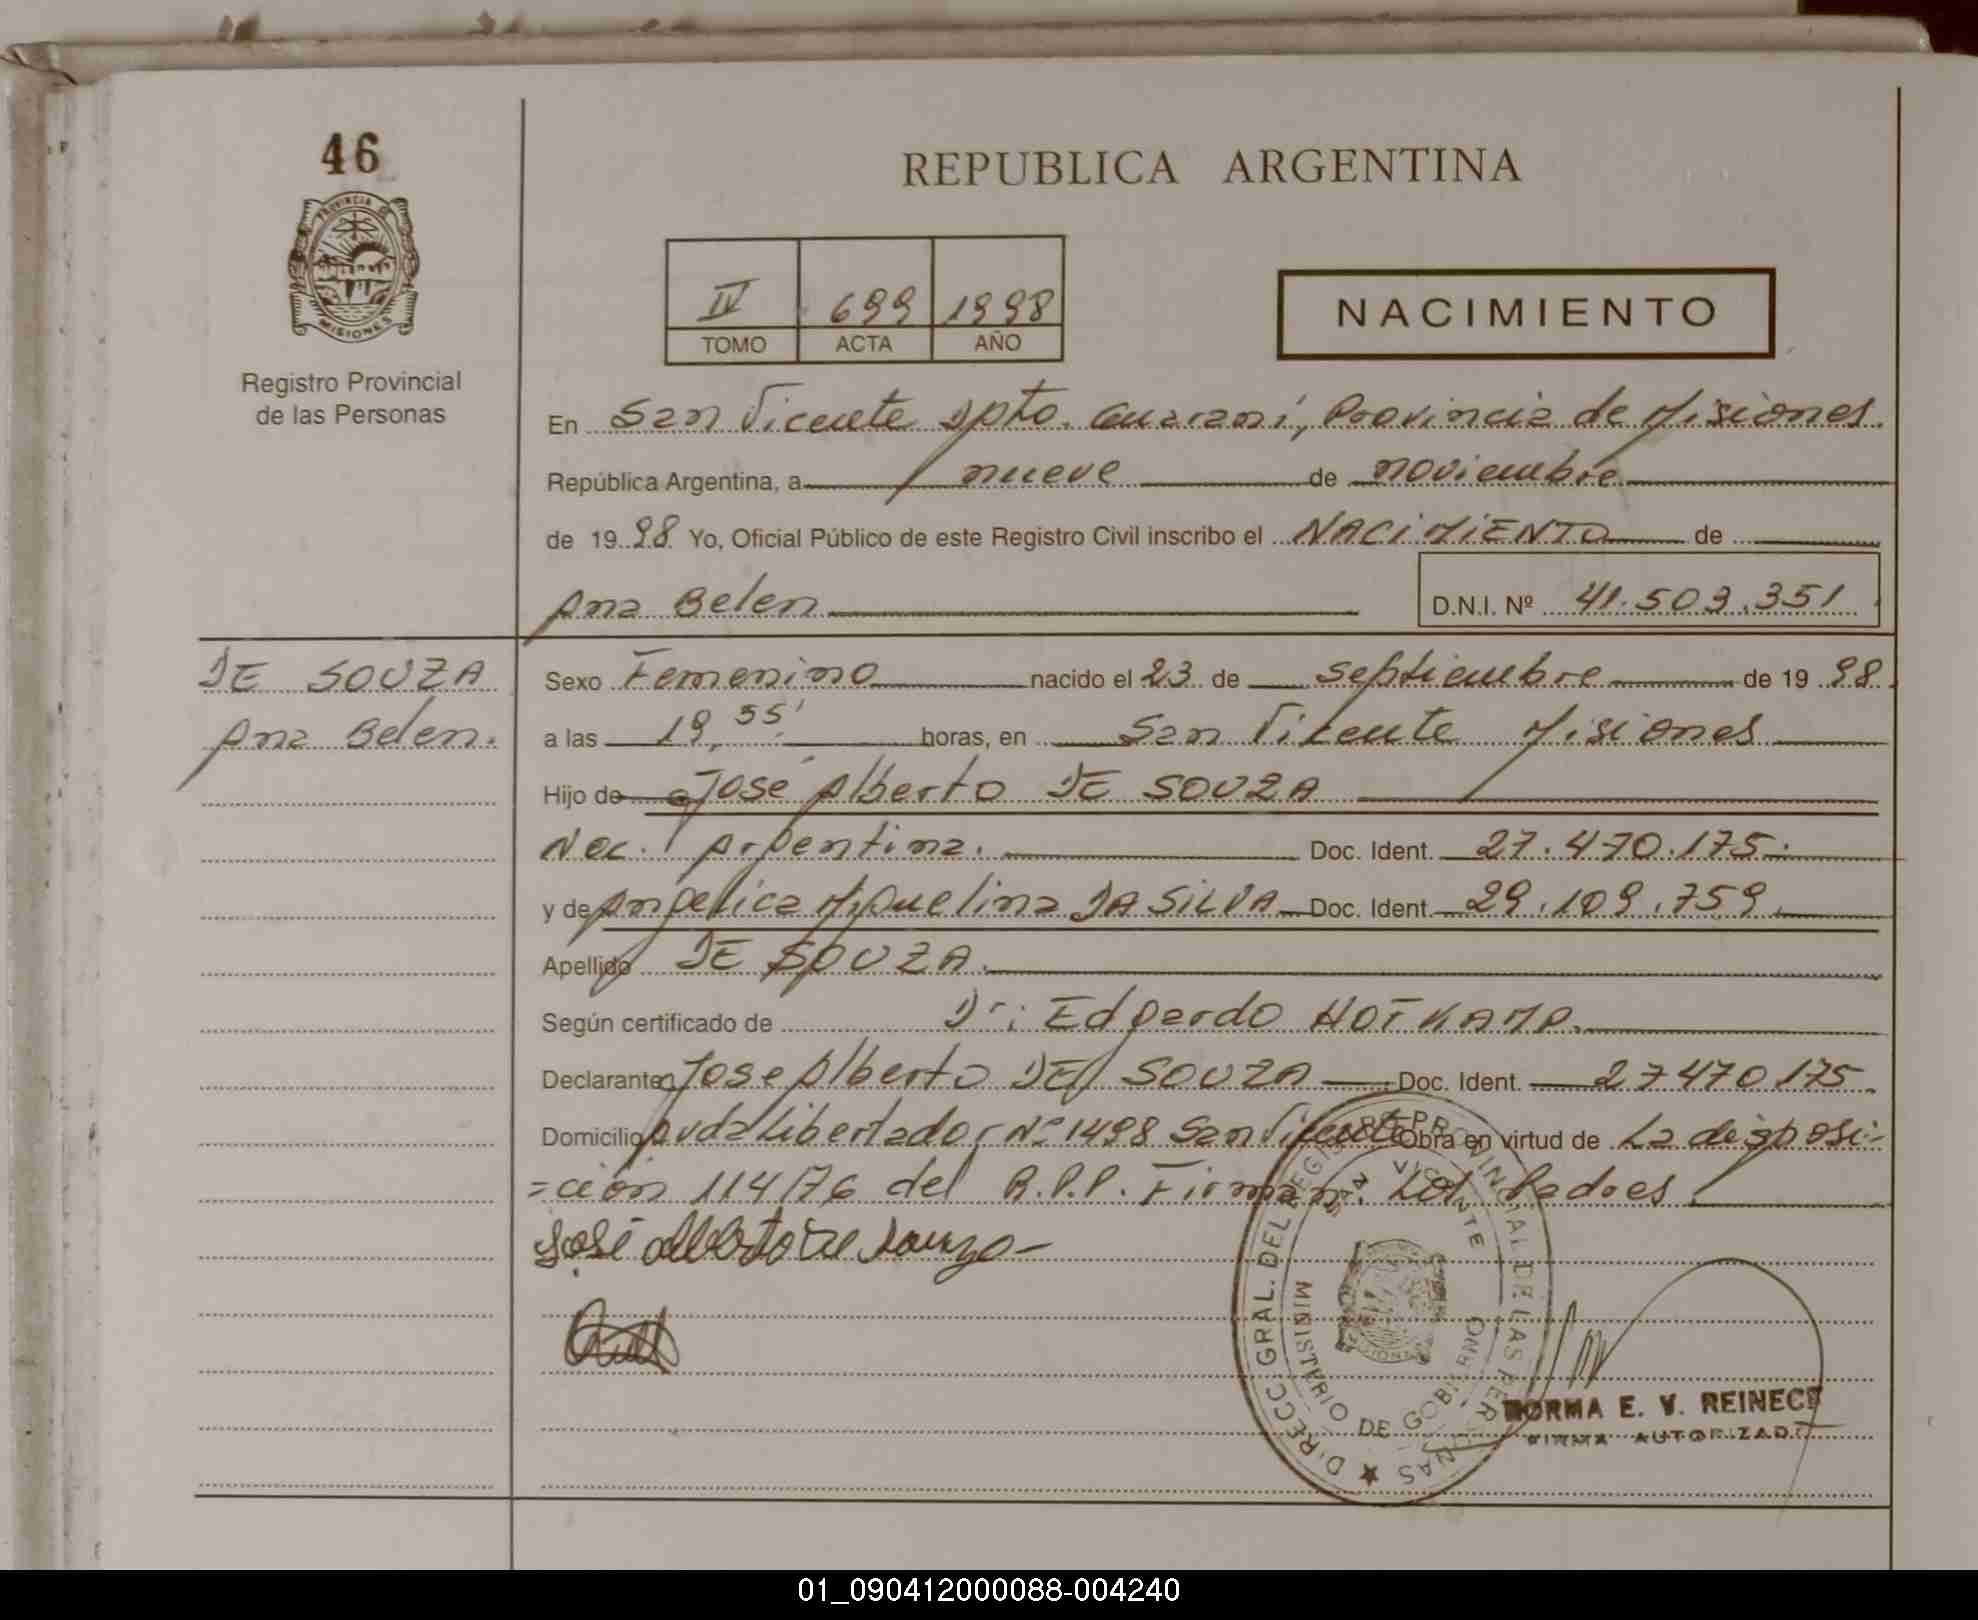 46
PROVINCIA DE
MISIONES
Registro Provincial
de las Personas
REPUBLICA ARGENTINA
IV 699 1998
TOMO ACTA AÑO
NACIMIENTO
En San Vicente Dpto. Guaraní, Provincia de Misiones.
República Argentina, a nueve de noviembre
de 19 98 Yo, Oficial Público de este Registro Civil inscribo el NACIMIENTO de
Ana Belen D.N.I. Nº 41.503.351
DE SOUZA
Ana Belen.
Sexo Femenino nacido el 23 de septiembre de 19 98.
a las 19,55' horas, en San Vicente Misiones
Hijo de José Alberto DE SOUZA
Nac. Argentina. Doc. Ident. 27.470.175.
y de Angelica Miquelina DA SILVA Doc. Ident. 29.109.759.
Apellido DE SOUZA.
Según certificado de Dr: Edgardo
Declarante José Alberto DE SOUZA Doc. Ident. 27470175
Domicilio Avda Libertador Nº 1498 San Vicente Obra en virtud de La disposi-
=ción 114/76 del R.P.P. Firman: Los Padres
José Alberto De Souza-
DIRECC. GRAL. DEL REGISTRO PROVINCIAL DE LAS PERSONAS
SAN VICENTE
MINISTERIO DE GOBIERNO
NORMA E. V. REINECK
FIRMA AUTORIZADA
01_090412000088-004240